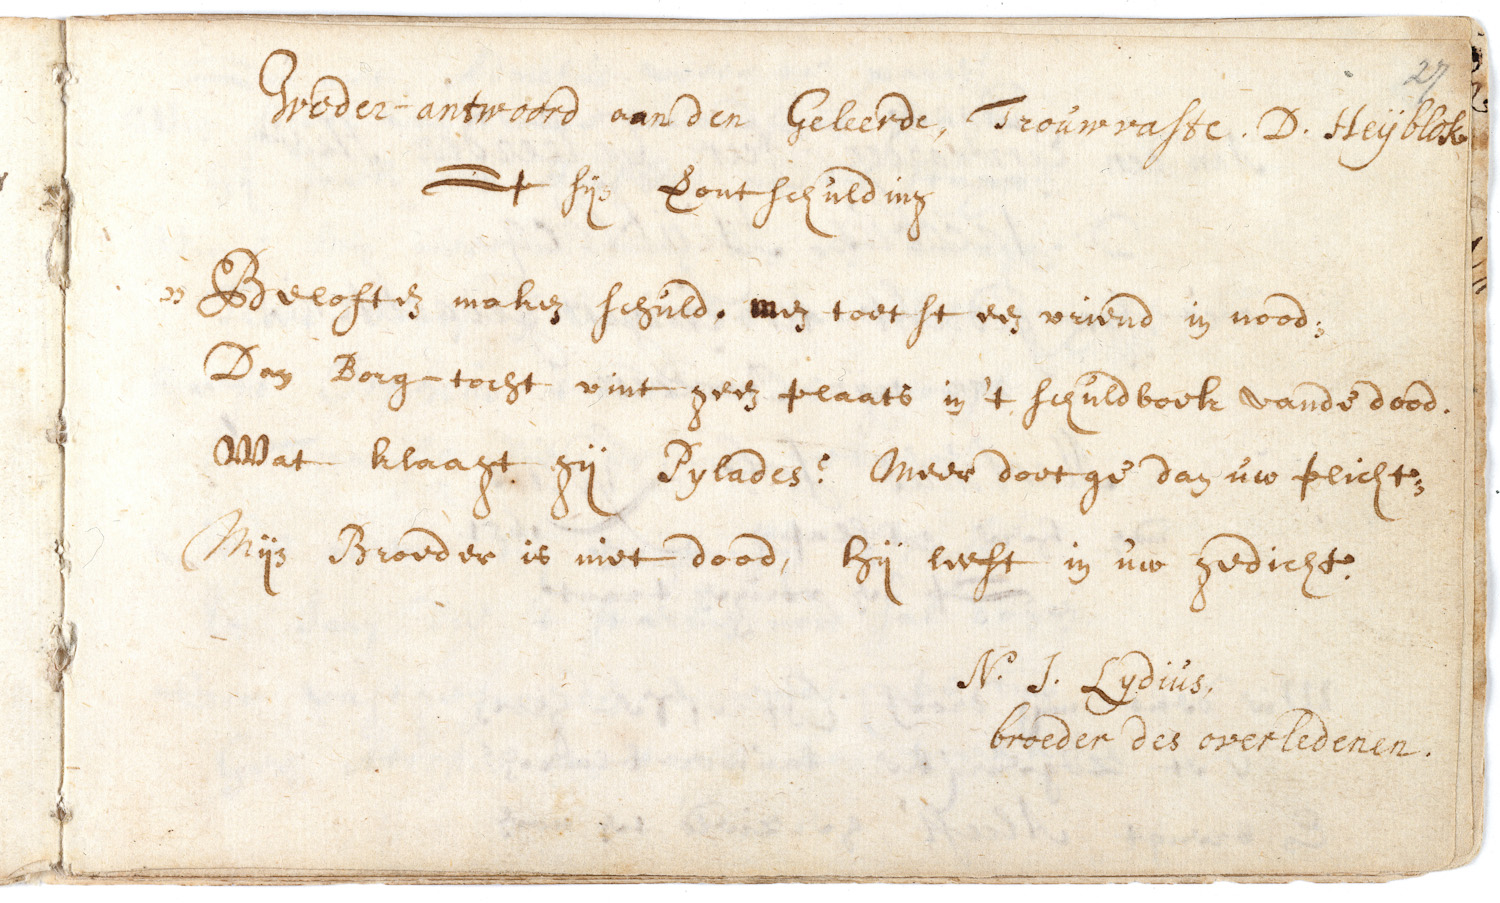 27
Weder-antwoord aan den Geleerde, Trouwvaste. D. Heÿblok
Op sijn Lontschulding
„ Beloften maken schuld. men toetst een vriend in nood;
Dan Borg-tocht vint geen plaats in 't schuldboek vande dood.
Wat klaagt gij Pylades? Meer doet ge dan uw plicht;
Mijn Broeder is niet dood, hij leeft in uw gedicht.
N. J. Lydius.
broeder des overledenen.